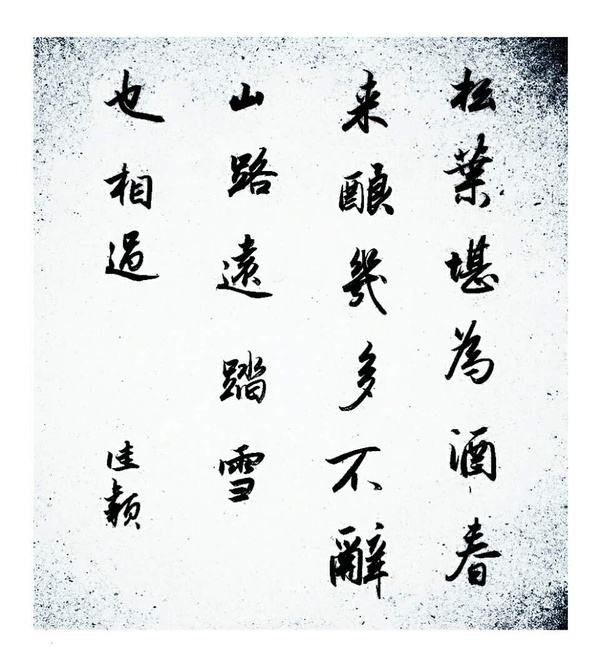 松葉堪為酒春
来釀幾多不辭
山路遠踏雪
也相過
佳穎